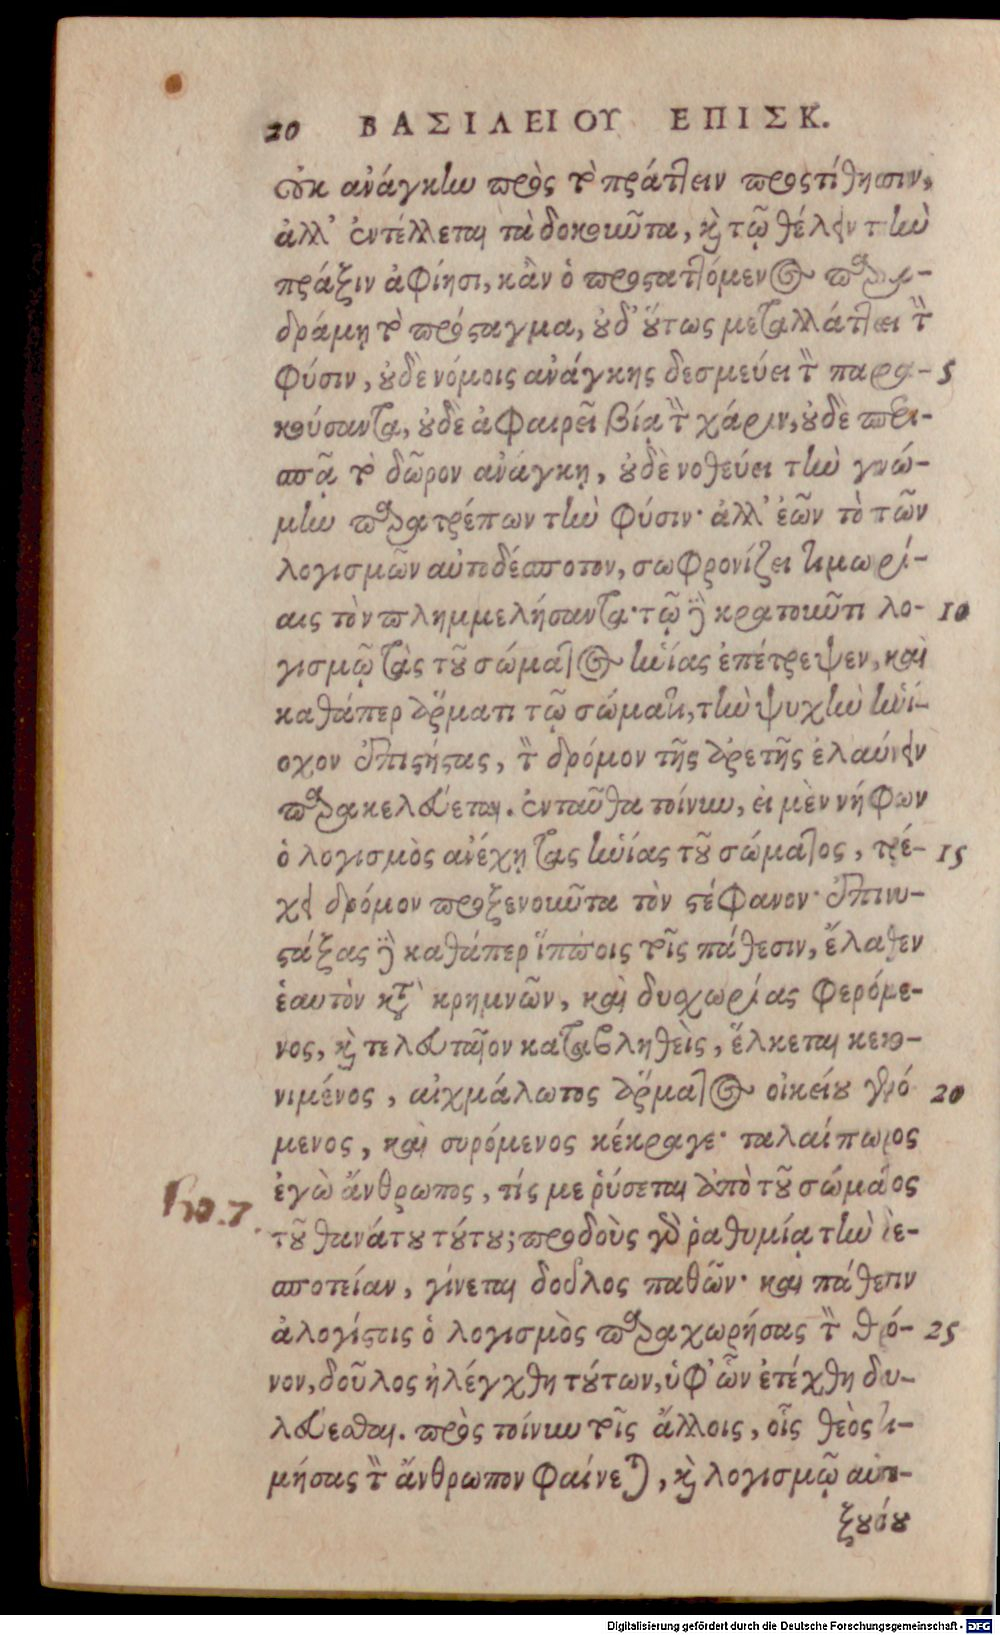 20 ΒΑΣΙΛΕΙΟΥ ΕΠΙΣΚ.
οὐκ ἀνάγκην πρὸς τὸ πράττειν προστίθησιν,
ἀλλ' ἐντέλλεται τὰ δοκοῦντα, καὶ τῷ θέλειν τὴν
πρᾶξιν ἀφίησι, κἂν ὁ προσαττόμενος παρα-
δράμῃ τὸ πρόσταγμα, οὐδ' οὕτως μεταλλάττει τὴν
φύσιν, οὐδὲ νόμοις ἀνάγκης δεσμεύει τὸν παρα- 5
κούσαντα, οὐδὲ ἀφαιρεῖ βίᾳ τὴν χάριν, οὐδὲ περι-
σπᾷ τὸ δῶρον ἀνάγκῃ, οὐδὲ νοθεύει τὴν γνώ-
μην παρατρέπων τὴν φύσιν· ἀλλ' ἐῶν τὸ τῶν
λογισμῶν αὐτοδέσποτον, σωφρονίζει τιμωρί-
αις τὸν πλημμελήσαντα· τῷ δὲ κρατοῦντι λο- 10
γισμῷ τὰς τοῦ σώματος ἡνίας ἐπέτρεψεν, καὶ
καθάπερ ἅρματι τῷ σώματι, τὴν ψυχὴν ἡνί-
οχον ἐπιστήσας, τὸν δρόμον τῆς ἀρετῆς ἐλαύνειν
παρακελεύεται. ἐνταῦθα τοίνυν, εἰ μὲν νήφων
ὁ λογισμὸς ἀνέχῃ τὰς ἡνίας τοῦ σώματος, τρέ- 15
χει δρόμον προξενοῦντα τὸν στέφανον· ἐπινυ-
στάξας δὲ καθάπερ ἵπποις τοῖς πάθεσιν, ἔλαθεν
ἑαυτὸν κατὰ κρημνῶν, καὶ δυσχωρίας φερόμε-
νος, καὶ τελευταῖον καταβληθεὶς, ἕλκεται κεκο-
νιμένος, αἰχμάλωτος ἅρματος οἰκείου γενό 20
μενος, καὶ συρόμενος κέκραγε· ταλαίπωρος
ἐγὼ ἄνθρωπος, τίς με ῥύσεται ἀπὸ τοῦ σώματος
Ro. 7.
τοῦ θανάτου τούτου; προδοὺς γὰρ ῥαθυμίᾳ τὴν δε-
σποτείαν, γίνεται δοῦλος παθῶν· καὶ πάθεσιν
ἀλογίστοις ὁ λογισμὸς παραχωρήσας τὸν θρό- 25
νον, δοῦλος ἠλέγχθη τούτων, ὑφ' ὧν ἐτέχθη δου-
λεύεσθαι. πρὸς τοίνυν τοῖς ἄλλοις, οἷς θεὸς τι-
μήσας τὸν ἄνθρωπον φαίνεται, καὶ λογισμῷ αὐτε-
ξουσίου
Digitalisierung gefördert durch die Deutsche Forschungsgemeinschaft - DFG